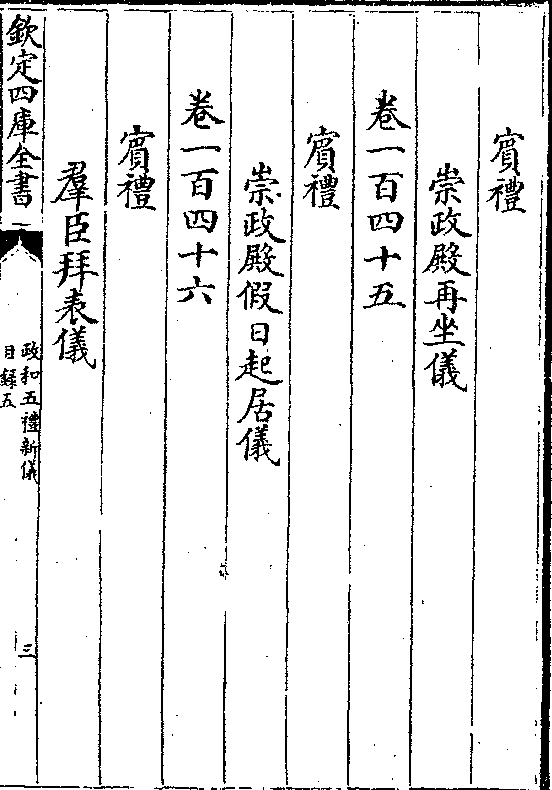 賓禮
崇政殿再坐儀
卷一百四十五
賓禮
崇政殿假日起居儀
卷一百四十六
賓禮
羣臣拜表儀
欽定四庫全書
政和五禮新儀
目録五
三